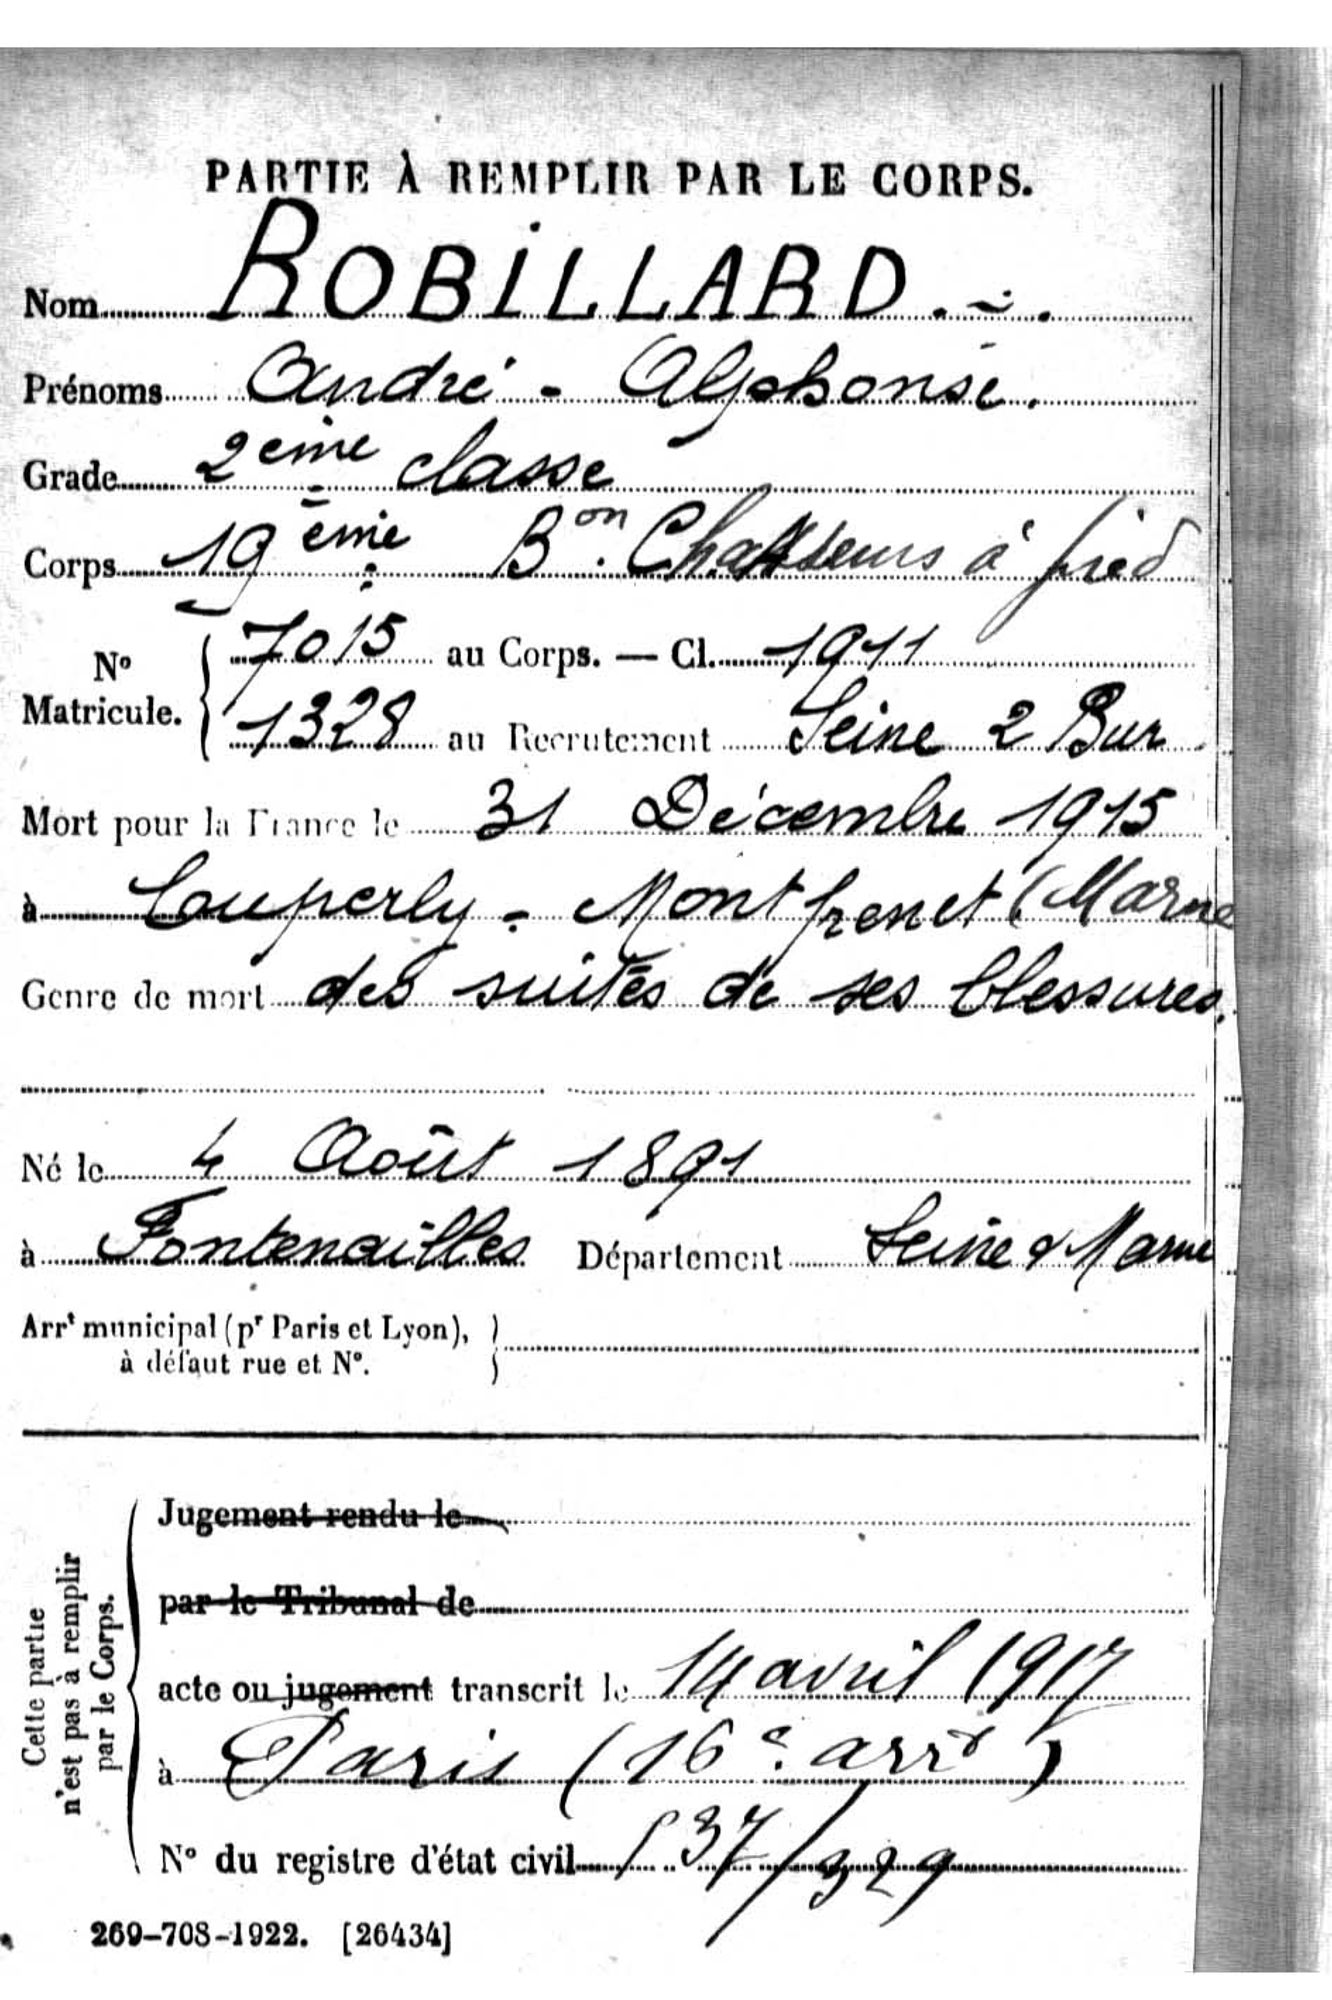 PARTIE À REMPLIR PAR LE CORPS.
Nom ROBILLARD.
Prénoms André - Alphonse.
Grade 2ème classe
Corps 19ème Bon Chasseurs à pied
No Matricule. { 7015 au Corps. — Cl. 1911
1328 au Recrutement Seine 2 Bur
Mort pour la France le 31 Décembre 1915
à Couperly - Montfrenet (Marne
Genre de mort des suites de ses blessures.
Né le 4 Août 1891
à Fontenailles Département Seine & Marne
Arrt municipal (pr Paris et Lyon),
à défaut rue et No.
Cette partie
n'est pas à remplir
par le Corps.
Jugement rendu le
par le Tribunal de
acte ou jugement transcrit le 14 avril 1917
à Paris (16e arrt)
No du registre d'état civil 37/329
269-708-1922. [26434]